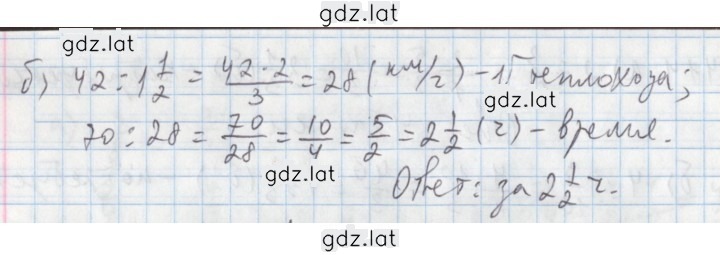 gdz.lat
gdz.lat
б) 42 : 1 1/2 = 42·2/3 = 28 (км/ч) – теплохода;
gdz.lat
70 : 28 = 70/28 = 10/4 = 5/2 = 2 1/2 (ч) – время.
gdz.lat
Ответ: за 2 1/2 ч.
gdz.lat